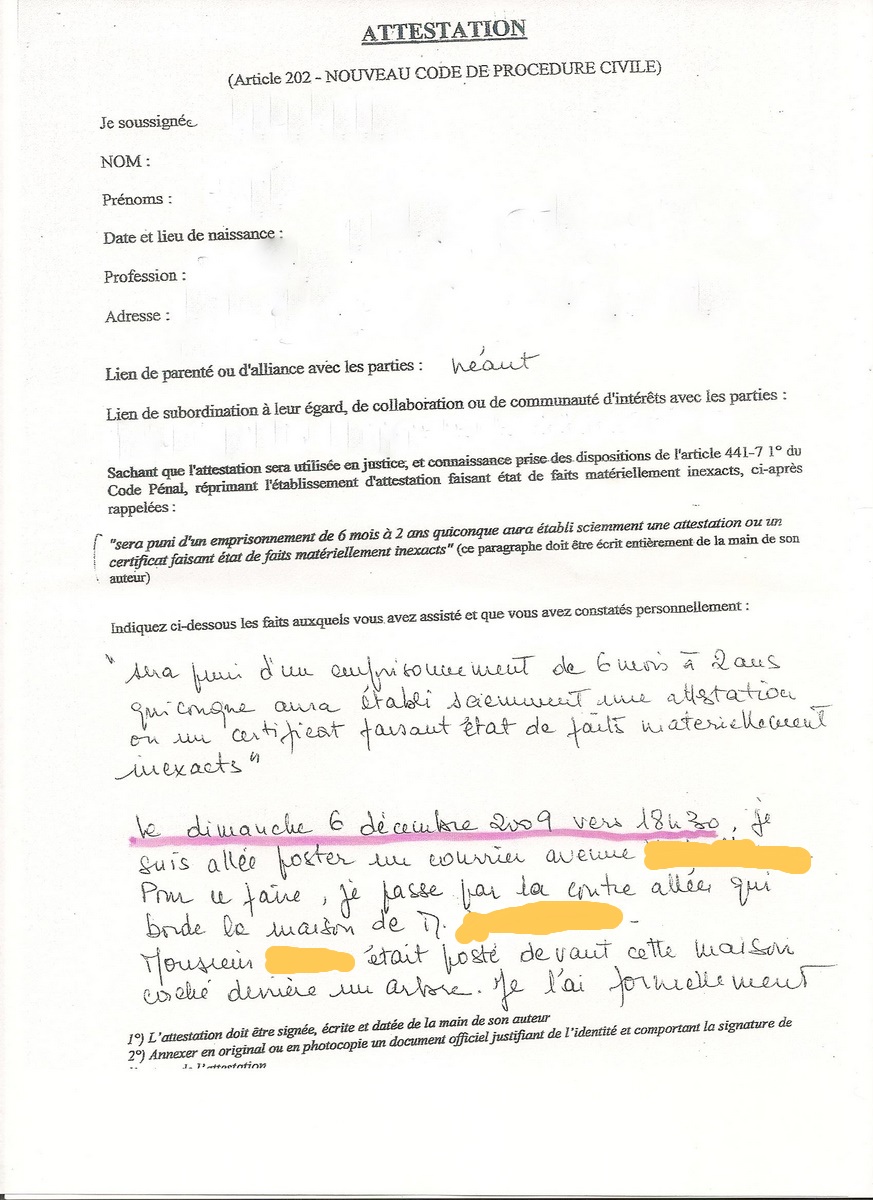 ATTESTATION
(Article 202 - NOUVEAU CODE DE PROCEDURE CIVILE)
Je soussignée
NOM :
Prénoms :
Date et lieu de naissance :
Profession :
Adresse :
Lien de parenté ou d'alliance avec les parties : néant
Lien de subordination à leur égard, de collaboration ou de communauté d'intérêts avec les parties :
Sachant que l'attestation sera utilisée en justice, et connaissance prise des dispositions de l'article 441-7 1° du
Code Pénal, réprimant l'établissement d'attestation faisant état de faits matériellement inexacts, ci-après
rappelées :
"sera puni d'un emprisonnement de 6 mois à 2 ans quiconque aura établi sciemment une attestation ou un
certificat faisant état de faits matériellement inexacts" (ce paragraphe doit être écrit entièrement de la main de son
auteur)
Indiquez ci-dessous les faits auxquels vous avez assisté et que vous avez constatés personnellement :
"sera puni d'un emprisonnement de 6 mois à 2 ans
quiconque aura établi sciemment une attestation
ou un certificat faisant état de faits matériellement
inexacts"
le dimanche 6 décembre 2009 vers 18h30, je
suis allée poster un courrier avenue
Pour ce faire, je passe par la contre allée qui
borde la maison de M.
Monsieur était posté devant cette maison
caché derrière un arbre. Je l'ai formellement
1°) L'attestation doit être signée, écrite et datée de la main de son auteur
2°) Annexer en original ou en photocopie un document officiel justifiant de l'identité et comportant la signature de
de l'attestation